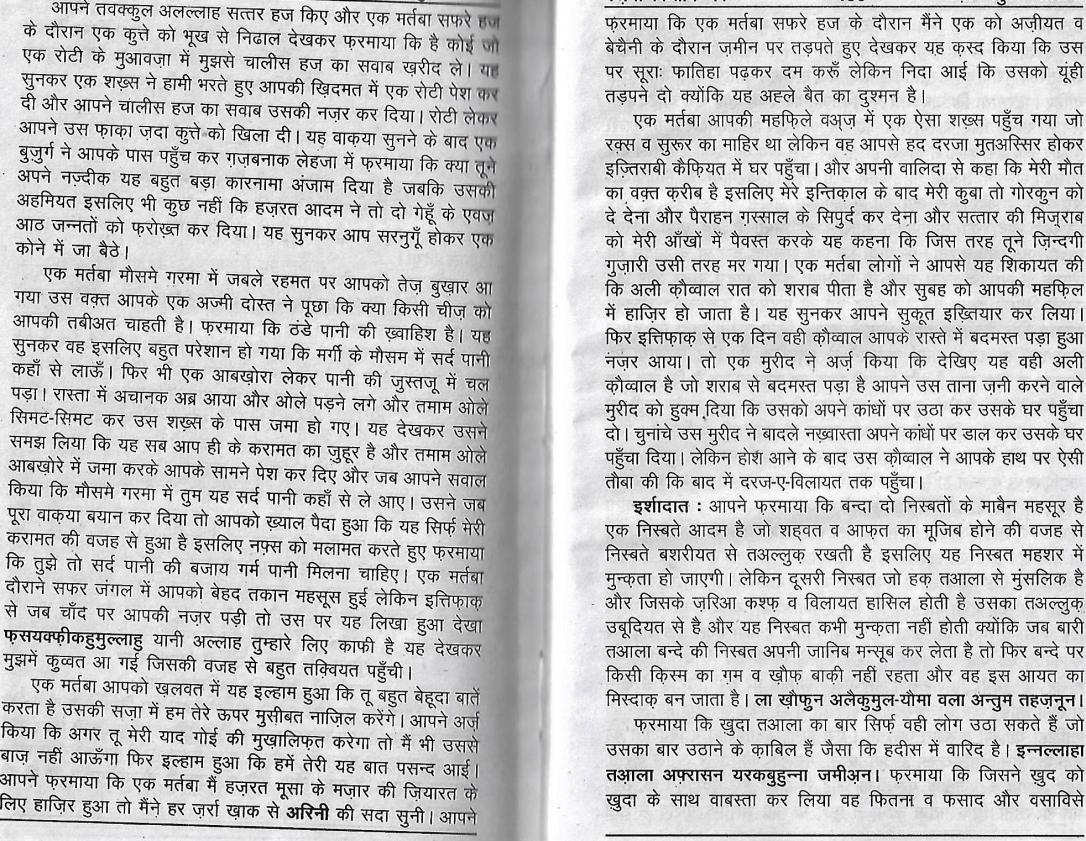 आपने तवक्कुल अलल्लाह सत्तर हज किए और एक मर्तबा सफरे हज
के दौरान एक कुत्ते को भूख से निढाल देखकर फ़रमाया कि है कोई जो
एक रोटी के मुआवज़ा में मुझसे चालीस हज का सवाब ख़रीद ले। यह
सुनकर एक शख़्स ने हामी भरते हुए आपकी ख़िदमत में एक रोटी पेश कर
दी और आपने चालीस हज का सवाब उसकी नज़र कर दिया। रोटी लेकर
आपने उस फ़ाक़ा ज़दा कुत्ते को खिला दी। यह वाक़या सुनने के बाद एक
बुज़ुर्ग ने आपके पास पहुँच कर ग़ज़बनाक लेहजा में फ़रमाया कि क्या तूने
अपने नज़्दीक यह बहुत बड़ा कारनामा अंजाम दिया है जबकि उसकी
अहमियत इसलिए भी कुछ नहीं कि हज़रत आदम ने तो दो गेहूँ के एवज़
आठ जन्नतों को फ़रोख़्त कर दिया। यह सुनकर आप सरनुगूँ होकर एक
कोने में जा बैठे।
एक मर्तबा मौसमे गरमा में जबले रहमत पर आपको तेज़ बुख़ार आ
गया उस वक़्त आपके एक अज्मी दोस्त ने पूछा कि क्या किसी चीज़ को
आपकी तबीअत चाहती है। फ़रमाया कि ठंडे पानी की ख़्वाहिश है। यह
सुनकर वह इसलिए बहुत परेशान हो गया कि मर्गी के मौसम में सर्द पानी
कहाँ से लाऊँ। फिर भी एक आबख़ोरा लेकर पानी की जुस्तजू में चल
पड़ा। रास्ता में अचानक अब्र आया और ओले पड़ने लगे और तमाम ओले
सिमट-सिमट कर उस शख़्स के पास जमा हो गए। यह देखकर उसने
समझ लिया कि यह सब आप ही के करामत का ज़ुहूर है और तमाम ओले
आबख़ोरे में जमा करके आपके सामने पेश कर दिए और जब आपने सवाल
किया कि मौसमे गरमा में तुम यह सर्द पानी कहाँ से ले आए। उसने जब
पूरा वाक़या बयान कर दिया तो आपको ख़्याल पैदा हुआ कि यह सिर्फ़ मेरी
करामत की वजह से हुआ है इसलिए नफ़्स को मलामत करते हुए फ़रमाया
कि तुझे तो सर्द पानी की बजाय गर्म पानी मिलना चाहिए। एक मर्तबा
दौराने सफर जंगल में आपको बेहद तकान महसूस हुई लेकिन इत्तिफ़ाक़
से जब चाँद पर आपकी नज़र पड़ी तो उस पर यह लिखा हुआ देखा
फ़सयक्फ़ीकहुमुल्लाहु यानी अल्लाह तुम्हारे लिए काफी है यह देखकर
मुझमें कुव्वत आ गई जिसकी वजह से बहुत तक़्वियत पहुँची।
एक मर्तबा आपको ख़लवत में यह इल्हाम हुआ कि तू बहुत बेहूदा बातें
करता है उसकी सज़ा में हम तेरे ऊपर मुसीबत नाज़िल करेंगे। आपने अर्ज़
किया कि अगर तू मेरी याद गोई की मुख़ालिफ़त करेगा तो मैं भी उससे
बाज़ नहीं आऊँगा फिर इल्हाम हुआ कि हमें तेरी यह बात पसन्द आई।
आपने फ़रमाया कि एक मर्तबा मैं हज़रत मूसा के मज़ार की ज़ियारत के
लिए हाज़िर हुआ तो मैंने हर ज़र्रा ख़ाक से अरिनी की सदा सुनी। आपने
फ़रमाया कि एक मर्तबा सफरे हज के दौरान मैंने एक को अज़ीयत व
बेचैनी के दौरान ज़मीन पर तड़पते हुए देखकर यह क़स्द किया कि उस
पर सूराः फातिहा पढ़कर दम करूँ लेकिन निदा आई कि उसको यूंही
तड़पने दो क्योंकि यह अहले बैत का दुश्मन है।
एक मर्तबा आपकी महफ़िले वअ्ज़ में एक ऐसा शख़्स पहुँच गया जो
रक़्स व सुरूर का माहिर था लेकिन वह आपसे हद दरजा मुतअस्सिर होकर
इज़्तिराबी कैफ़ियत में घर पहुँचा। और अपनी वालिदा से कहा कि मेरी मौत
का वक़्त क़रीब है इसलिए मेरे इन्तिक़ाल के बाद मेरी क़ुबा तो गोरकुन को
दे देना और पैराहन ग़स्साल के सिपुर्द कर देना और सत्तार की मिज़्राब
को मेरी आँखों में पैवस्त करके यह कहना कि जिस तरह तूने ज़िन्दगी
गुज़ारी उसी तरह मर गया। एक मर्तबा लोगों ने आपसे यह शिकायत की
कि अली क़ौव्वाल रात को शराब पीता है और सुबह को आपकी महफ़िल
में हाज़िर हो जाता है। यह सुनकर आपने सुकूत इख़्तियार कर लिया।
फिर इत्तिफ़ाक़ से एक दिन वही क़ौव्वाल आपके रास्ते में बदमस्त पड़ा हुआ
नज़र आया। तो एक मुरीद ने अर्ज़ किया कि देखिए यह वही अली
क़ौव्वाल है जो शराब से बदमस्त पड़ा है आपने उस ताना ज़नी करने वाले
मुरीद को हुक्म दिया कि उसको अपने कांधों पर उठा कर उसके घर पहुँचा
दो। चुनांचे उस मुरीद ने बादले नख़्वास्ता अपने कांधों पर डाल कर उसके घर
पहुँचा दिया। लेकिन होश आने के बाद उस क़ौव्वाल ने आपके हाथ पर ऐसी
तौबा की कि बाद में दरज-ए-विलायत तक पहुँचा।
इर्शादात : आपने फ़रमाया कि बन्दा दो निस्बतों के माबैन महसूर है
एक निस्बते आदम है जो शह्वत व आफ़त का मूजिब होने की वजह से
निस्बते बशरीयत से तअल्लुक़ रखती है इसलिए यह निस्बत महशर में
मुन्क़ता हो जाएगी। लेकिन दूसरी निस्बत जो हक़ तआला से मुंसलिक है
और जिसके ज़रिआ कश्फ़ व विलायत हासिल होती है उसका तअल्लुक़
उबूदियत से है और यह निस्बत कभी मुन्क़ता नहीं होती क्योंकि जब बारी
तआला बन्दे की निस्बत अपनी जानिब मन्सूब कर लेता है तो फिर बन्दे पर
किसी क़िस्म का ग़म व ख़ौफ़ बाक़ी नहीं रहता और वह इस आयत का
मिस्दाक़ बन जाता है। ला ख़ौफ़ुन अलैकुमुल-यौमा वला अन्तुम तहज़नून।
फ़रमाया कि ख़ुदा तआला का बार सिर्फ़ वही लोग उठा सकते हैं जो
उसका बार उठाने के क़ाबिल हैं जैसा कि हदीस में वारिद है। इन्नल्लाहा
तआला अफ़्रासन यरकबुहुन्ना जमीअन। फ़रमाया कि जिसने ख़ुद को
ख़ुदा के साथ वाबस्ता कर लिया वह फितना व फसाद और वसाविसे